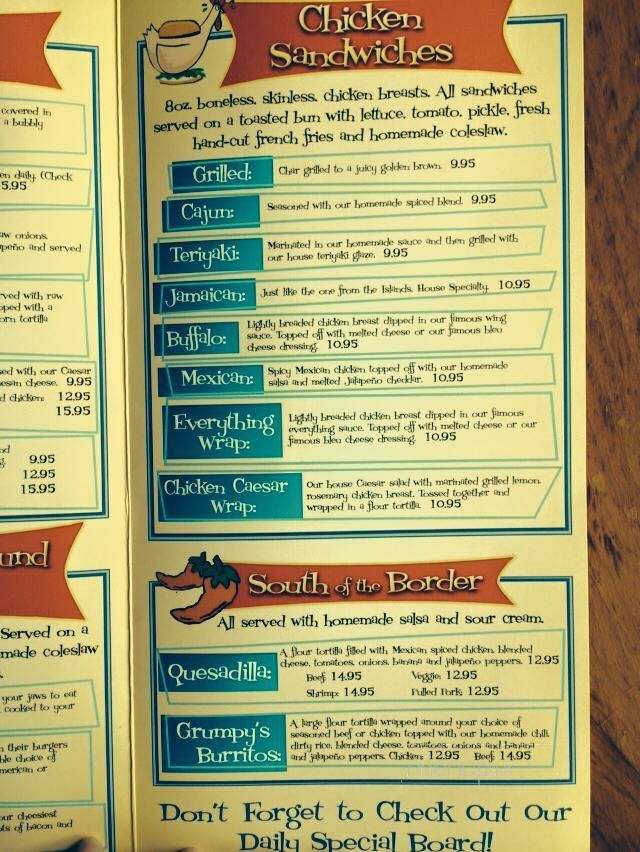 covered in
a bubbly
en daily. (Check
5.95
aw onions,
apeño and served
rved with raw
pped with a
orn tortilla
sed with our Caesar
esan cheese. 9.95
d chicken: 12.95
15.95
9.95
12.95
15.95
und
Served on a
made coleslaw
your jaws to eat
cooked to your
n their burgers
ble choice of
merican or
our cheesiest
ts of bacon and
Chicken
Sandwiches
8oz. boneless, skinless, chicken breasts. All sandwiches
served on a toasted bun with lettuce, tomato, pickle, fresh
hand-cut french fries and homemade coleslaw.
Grilled: Char grilled to a juicy golden brown. 9.95
Cajun: Seasoned with our homemade spiced blend. 9.95
Teriyaki: Marinated in our homemade sauce and then grilled with
our house teriyaki glaze. 9.95
Jamaican: Just like the one from the Islands. House Specialty. 10.95
Buffalo: Lightly breaded chicken breast dipped in our famous wing
sauce. Topped off with melted cheese or our famous bleu
cheese dressing. 10.95
Mexican: Spicy Mexican chicken topped off with our homemade
salsa and melted Jalapeño cheddar. 10.95
Everything
Wrap:
Lightly breaded chicken breast dipped in our famous
everything sauce. Topped off with melted cheese or our
famous bleu cheese dressing. 10.95
Chicken Caesar
Wrap:
Our house Caesar salad with marinated grilled lemon
rosemary chicken breast. Tossed together and
wrapped in a flour tortilla. 10.95
South of the Border
All served with homemade salsa and sour cream.
Quesadilla:
A flour tortilla filled with Mexican spiced chicken, blended
cheese, tomatoes, onions, banana and jalapeño peppers. 12.95
Beef: 14.95 Veggie: 12.95
Shrimp: 14.95 Pulled Pork: 12.95
Grumpy's
Burritos:
A large flour tortilla wrapped around your choice of
seasoned beef or chicken topped with our homemade chili,
dirty rice, blended cheese, tomatoes, onions and banana
and jalapeño peppers. Chicken: 12.95 Beef: 14.95
Don't Forget to Check Out Our
Daily Special Board!